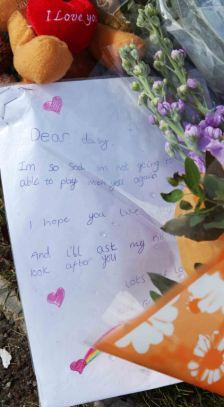 I Love you
Dear daisy
Im so sad im not going
able to play with you again
I hope you live
And i'll ask my
look after you
Lots